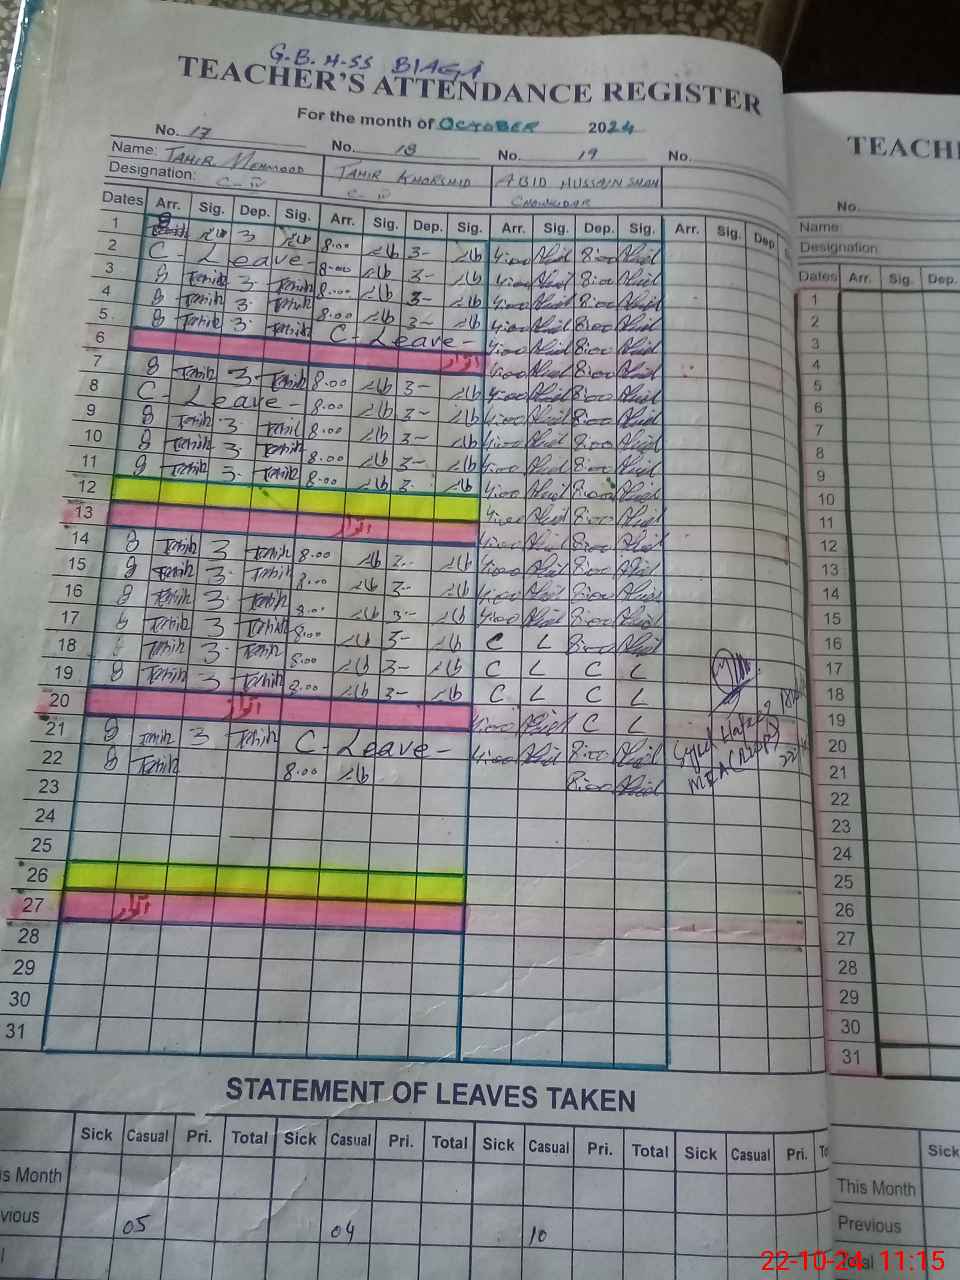 G.B.H-SS BIAGA
TEACHER'S ATTENDANCE REGISTER
For the month of OCTOBER 2024
No. 17 No. 18 No. 19 No.
Name: TAHIR MEHMOOD TAHIR KHORSHID ABID HUSSAIN SHAH
Designation: C-iv C-iv CHOWKIDAR
Dates Arr. Sig. Dep. Sig. Arr. Sig. Dep. Sig. Arr. Sig. Dep. Sig. Arr. Sig. Dep.
1 8 3 8.00 3- 4:00 Abid 8:00 Abid
2 C - Leave - 8.00 3- 4:00 Abid 8:00 Abid
3 8 Tahir 3. Tahir 8.00 3- 4:00 Abid 8:00 Abid
4 8 Tahir 3 Tahir 8.00 3- 4:00 Abid 8:00 Abid
5 8 Tahir 3. Tahir C - Leave - 4:00 Abid 8:00 Abid
6 اتوار 4:00 Abid 8:00 Abid
7 8 Tahir 3 Tahir 8.00 3- 4:00 Abid 8:00 Abid
8 C - Leave - 8.00 3- 4:00 Abid 8:00 Abid
9 8 Tahir 3. Tahir 8.00 3- 4:00 Abid 8:00 Abid
10 8 Tahir 3. Tahir 8.00 3- 4:00 Abid 8:00 Abid
11 8 Tahir 3. Tahir 8.00 3- 4:00 Abid 8:00 Abid
12 4:00 Abid 8:00 Abid
13 اتوار 4:00 Abid 8:00 Abid
14 8 Tahir 3 Tahir 8.00 3- 4:00 Abid 8:00 Abid
15 8 Tahir 3. Tahir 8.00 3- 4:00 Abid 8:00 Abid
16 8 Tahir 3. Tahir 8.00 3- 4:00 Abid 8:00 Abid
17 8 Tahir 3 Tahir 8.00 3- C L 8:00 Abid
18 8 Tahir 3. Tahir 8.00 3- C L C L
19 8 Tahir 3 Tahir 8.00 3- C L C L
20 اتوار 4:00 Abid C L
21 8 Tahir 3 Tahir C - Leave - 4:00 Abid 8:00 Abid
22 8 Tahir 8.00 8:00 Abid
23
24
25
26
27 اتوار
28
29
30
31
STATEMENT OF LEAVES TAKEN
Sick Casual Pri. Total Sick Casual Pri. Total Sick Casual Pri. Total Sick Casual Pri.
s Month
vious 05 04 10
TEACH
No.
Name:
Designation:
Dates Arr. Sig. Dep.
1
2
3
4
5
6
7
8
9
10
11
12
13
14
15
16
17
18
19
20
21
22
23
24
25
26
27
28
29
30
31
Sick
This Month
Previous
Total
22-10-24 11:15